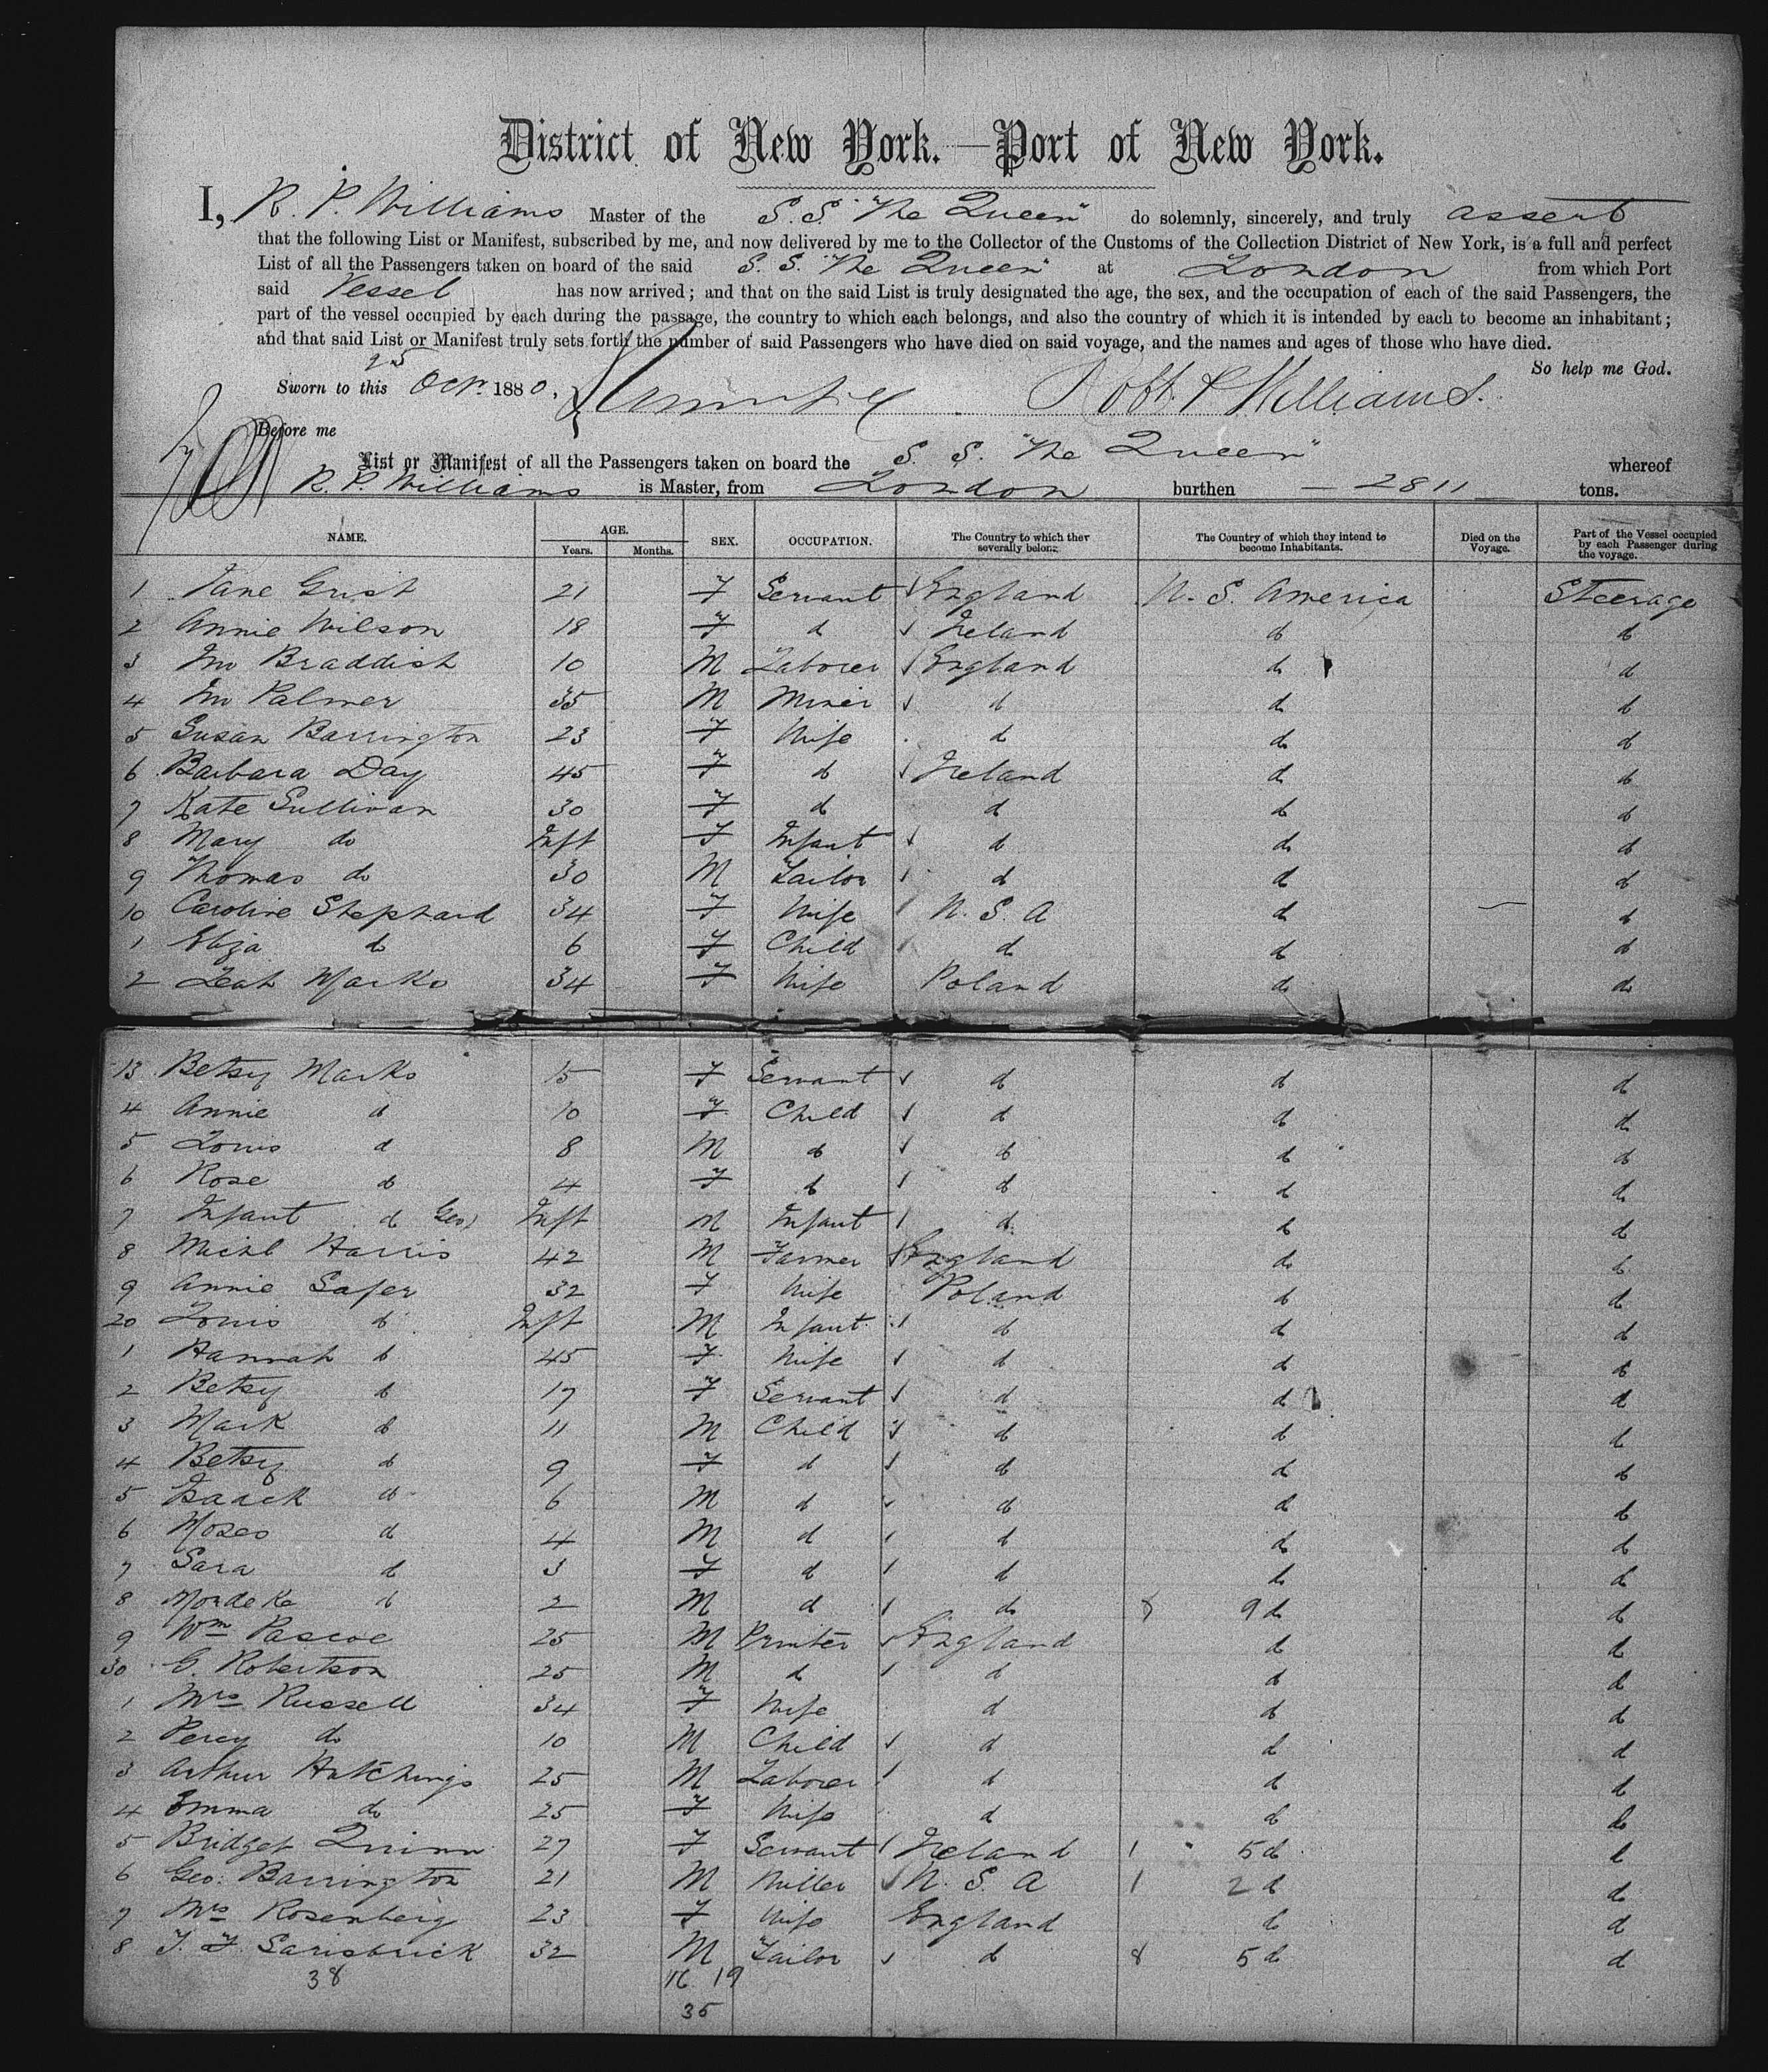 District of New York.—Port of New York.
I, R. P. Williams Master of the S. S. "The Queen" do solemnly, sincerely, and truly assert
that the following List or Manifest, subscribed by me, and now delivered by me to the Collector of the Customs of the Collection District of New York, is a full and perfect
List of all the Passengers taken on board of the said S. S. "The Queen" at London from which Port
said Vessel has now arrived; and that on the said List is truly designated the age, the sex, and the occupation of each of the said Passengers, the
part of the vessel occupied by each during the passage, the country to which each belongs, and also the country of which it is intended by each to become an inhabitant;
and that said List or Manifest truly sets forth the number of said Passengers who have died on said voyage, and the names and ages of those who have died.
So help me God.
Sworn to this 25 Oct. 1880, Robt. P Williams.
Before me
List or Manifest of all the Passengers taken on board the S. S. "The Queen" whereof
R. P. Williams is Master, from London burthen — 2811 — tons.
NAME. AGE. Years. Months. SEX. OCCUPATION. The Country to which they severally belong. The Country of which they intend to become Inhabitants. Died on the Voyage. Part of the Vessel occupied by each Passenger during the voyage.
1 Jane Grist 21 F Servant England U. S. America Steerage
2 Annie Wilson 18 F d Ireland d d
3 Jno Braddish 10 M Laborer England d d
4 Jno Palmer 35 M Miner d d d
5 Susan Barrington 23 F Wife d d d
6 Barbara Day 45 F d Ireland d d
7 Kate Sullivan 30 F d d d d
8 Mary do Inft F Infant d d d
9 Thomas do 30 M Tailor d d d
10 Caroline Stephard 34 F Wife U. S. A d d
1 Eliza do 6 F Child d d d
2 Leah Marks 34 F Wife Poland d do
13 Betsy Marks 15 F Servant d d d
4 Annie d 10 F Child d d d
5 Louis d 8 M d d d d
6 Rose d 4 F d d d d
7 Infant d Geo) Inft M Infant d d d
8 Michl Harris 42 M Farmer England d d
9 Annie Safer 32 F Wife Poland d d
20 Louis d Inft M Infant d d d
1 Hannah d 45 F Wife d d d
2 Betsy d 17 F Servant d d d
3 Mark d 11 M Child d d d
4 Betsy d 9 F d d d d
5 Isaack d 6 M d d d d
6 Moses d 4 M d d d d
7 Sara d 3 F d d d d
8 Mordeka d 2 M d do 8 9 d d
9 Wm Pascoe 25 M Printer England d d
30 G. Robertson 25 M d d d d
1 Mrs Russell 34 F Wife d d d
2 Percy do 10 M Child d d d
3 Arthur Hutchings 25 M Laborer d d d
4 Emma do 25 F Wife d d d
5 Bridget Quinn 27 F Servant Ireland 1 5 d d
6 Geo: Barrington 21 M Miller U. S. A 1 2 d d
7 Mrs Rosenberg 23 F Wife England d d
8 T. F. Sarisbrick 32 M Tailor d 8 5 d d
38 16 19
35